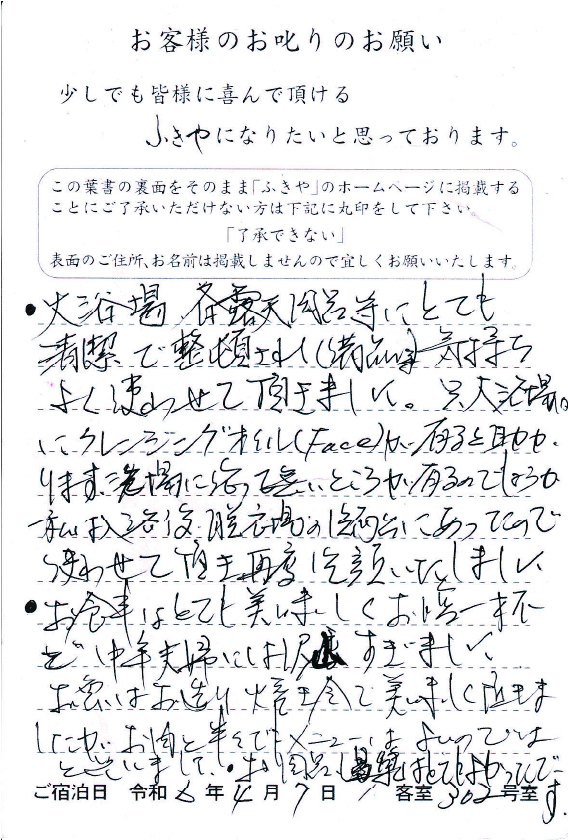 お客様のお叱りのお願い
少しでも皆様に喜んで頂ける
ふきやになりたいと思っております。
この葉書の裏面をそのまま「ふきや」のホームページに掲載する
ことにご了承いただけない方は下記に丸印をして下さい
「了承できない」
表面のご住所、お名前は掲載しませんので宜しくお願いいたします。
●大浴場、各露天風呂等にとても
清潔で整頓され(備品等)気持ち
よく使わせて頂きました。只大浴場内
にクレンジングオイル(Face)が有ると助か
ります、洗場に
私は入浴後、脱衣場の洗面台にあったので
使わせて頂き再度洗顔いたしました
●お食事はとても美味しくお腹一杯
で中年夫婦には すぎました、
お魚はお造り 焼き全て美味しく頂きま
したが、お肉と メニューは よいのでは
と思いました、●お風呂 はとてもよかったです。
ご宿泊日 令和 6 年 4 月 7 日 客室 302 号室